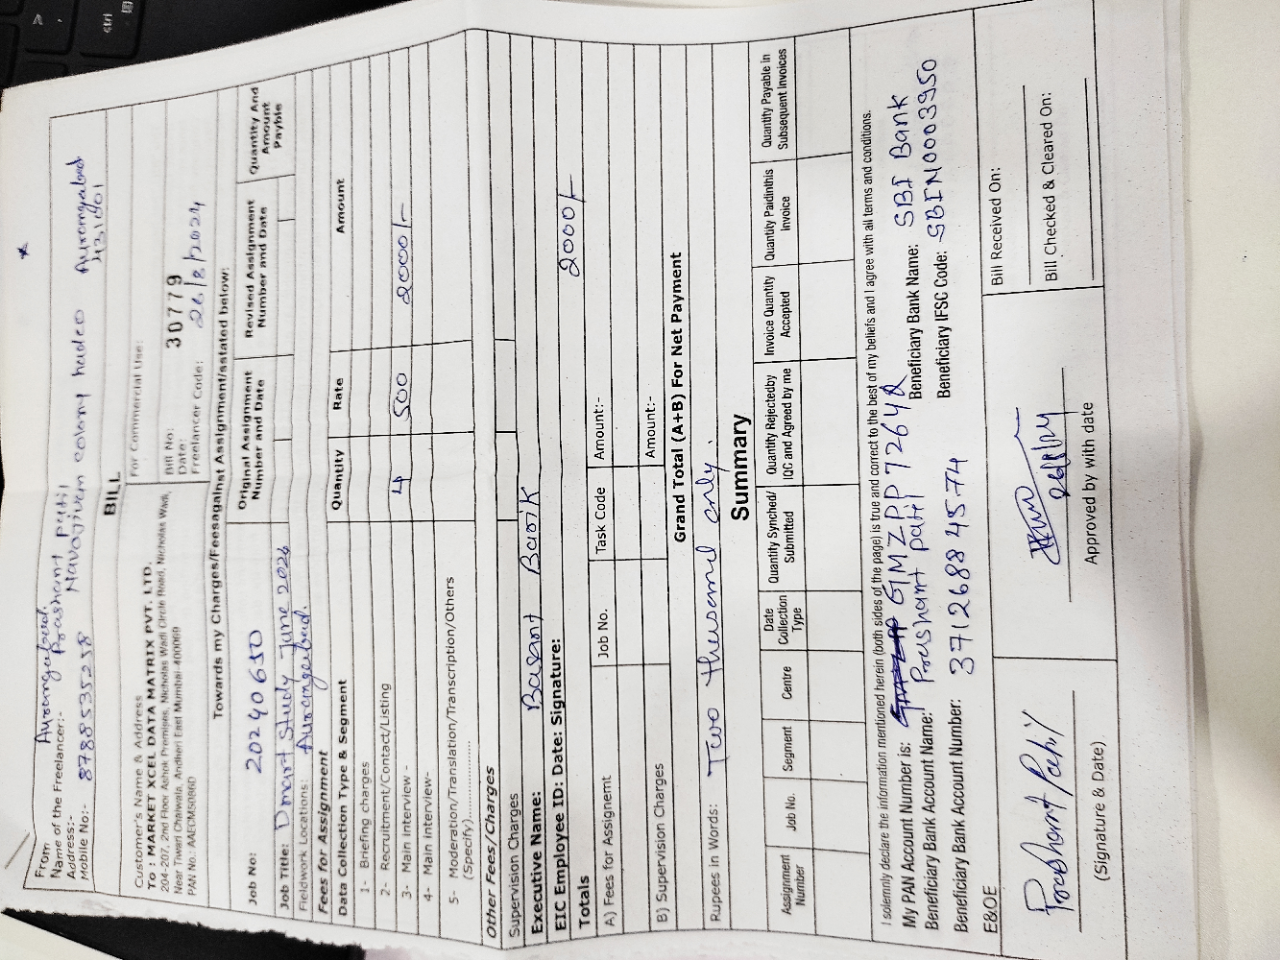 From Aurangabad.
Name of the Freelancer:- Prashant patil
Address:- Navajivan colony hudco Aurangabad 431001
Mobile No:- 8788535238
BILL
Customer's Name & Address
To : MARKET XCEL DATA MATRIX PVT. LTD.
204-207, 2nd Floor Ashok Premises, Nicholas Wadi Circle Road, Nicholas Wadi,
Near Tiwari Chaiwala, Andheri East Mumbai 400069
PAN No.: AAECM5086D
For Commercial Use:
Bill No: 30779
Date: 26/8/2024
Freelancer Code:
Towards my Charges/Feesagainst Assignment/sstated below:
Job No: 20240650
Original Assignment Number and Date
Revised Assignment Number and Date
Quantity And Amount Payble
Job Title: Dmart Study June 2024
Fieldwork Locations: Aurangabad.
Fees for Assignment
Data Collection Type & Segment Quantity Rate Amount
1- Briefing charges
2- Recruitment/Contact/Listing
3- Main Interview - 4 500 2000/-
4- Main Interview-
5- Moderation/Translation/Transcription/Others
(Specify)..................
Other Fees/Charges
Supervision Charges
Executive Name: Basant Barik
EIC Employee ID: Date: Signature:
Totals 2000/-
A) Fees for Assignemt Job No. Task Code Amount:-
B) Supervision Charges Amount:-
Grand Total (A+B) For Net Payment
Rupees In Words: Two thusend only.
Summary
Assignment Number
Job No.
Segment
Centre
Date Collection Type
Quantity Synched/ Submitted
Quantity Rejectedby IQC and Agreed by me
Invoice Quantity Accepted
Quantity Paidinthis Invoice
Quantity Payable in Subsequent Invoices
I solemnly declare the information mentioned herein (both sides of the page) is true and correct to the best of my beliefs and I agree with all terms and conditions.
My PAN Account Number is: GMZPP7264Q
Beneficiary Bank Account Name: Prashant patil Beneficiary Bank Name: SBI Bank
Beneficiary Bank Account Number: 37126884574 Beneficiary IFSC Code: SBIN0003950
E&OE
Prashant Patil
(Signature & Date)
Approved by with date
Bill Received On:
Bill Checked & Cleared On:
ctrl